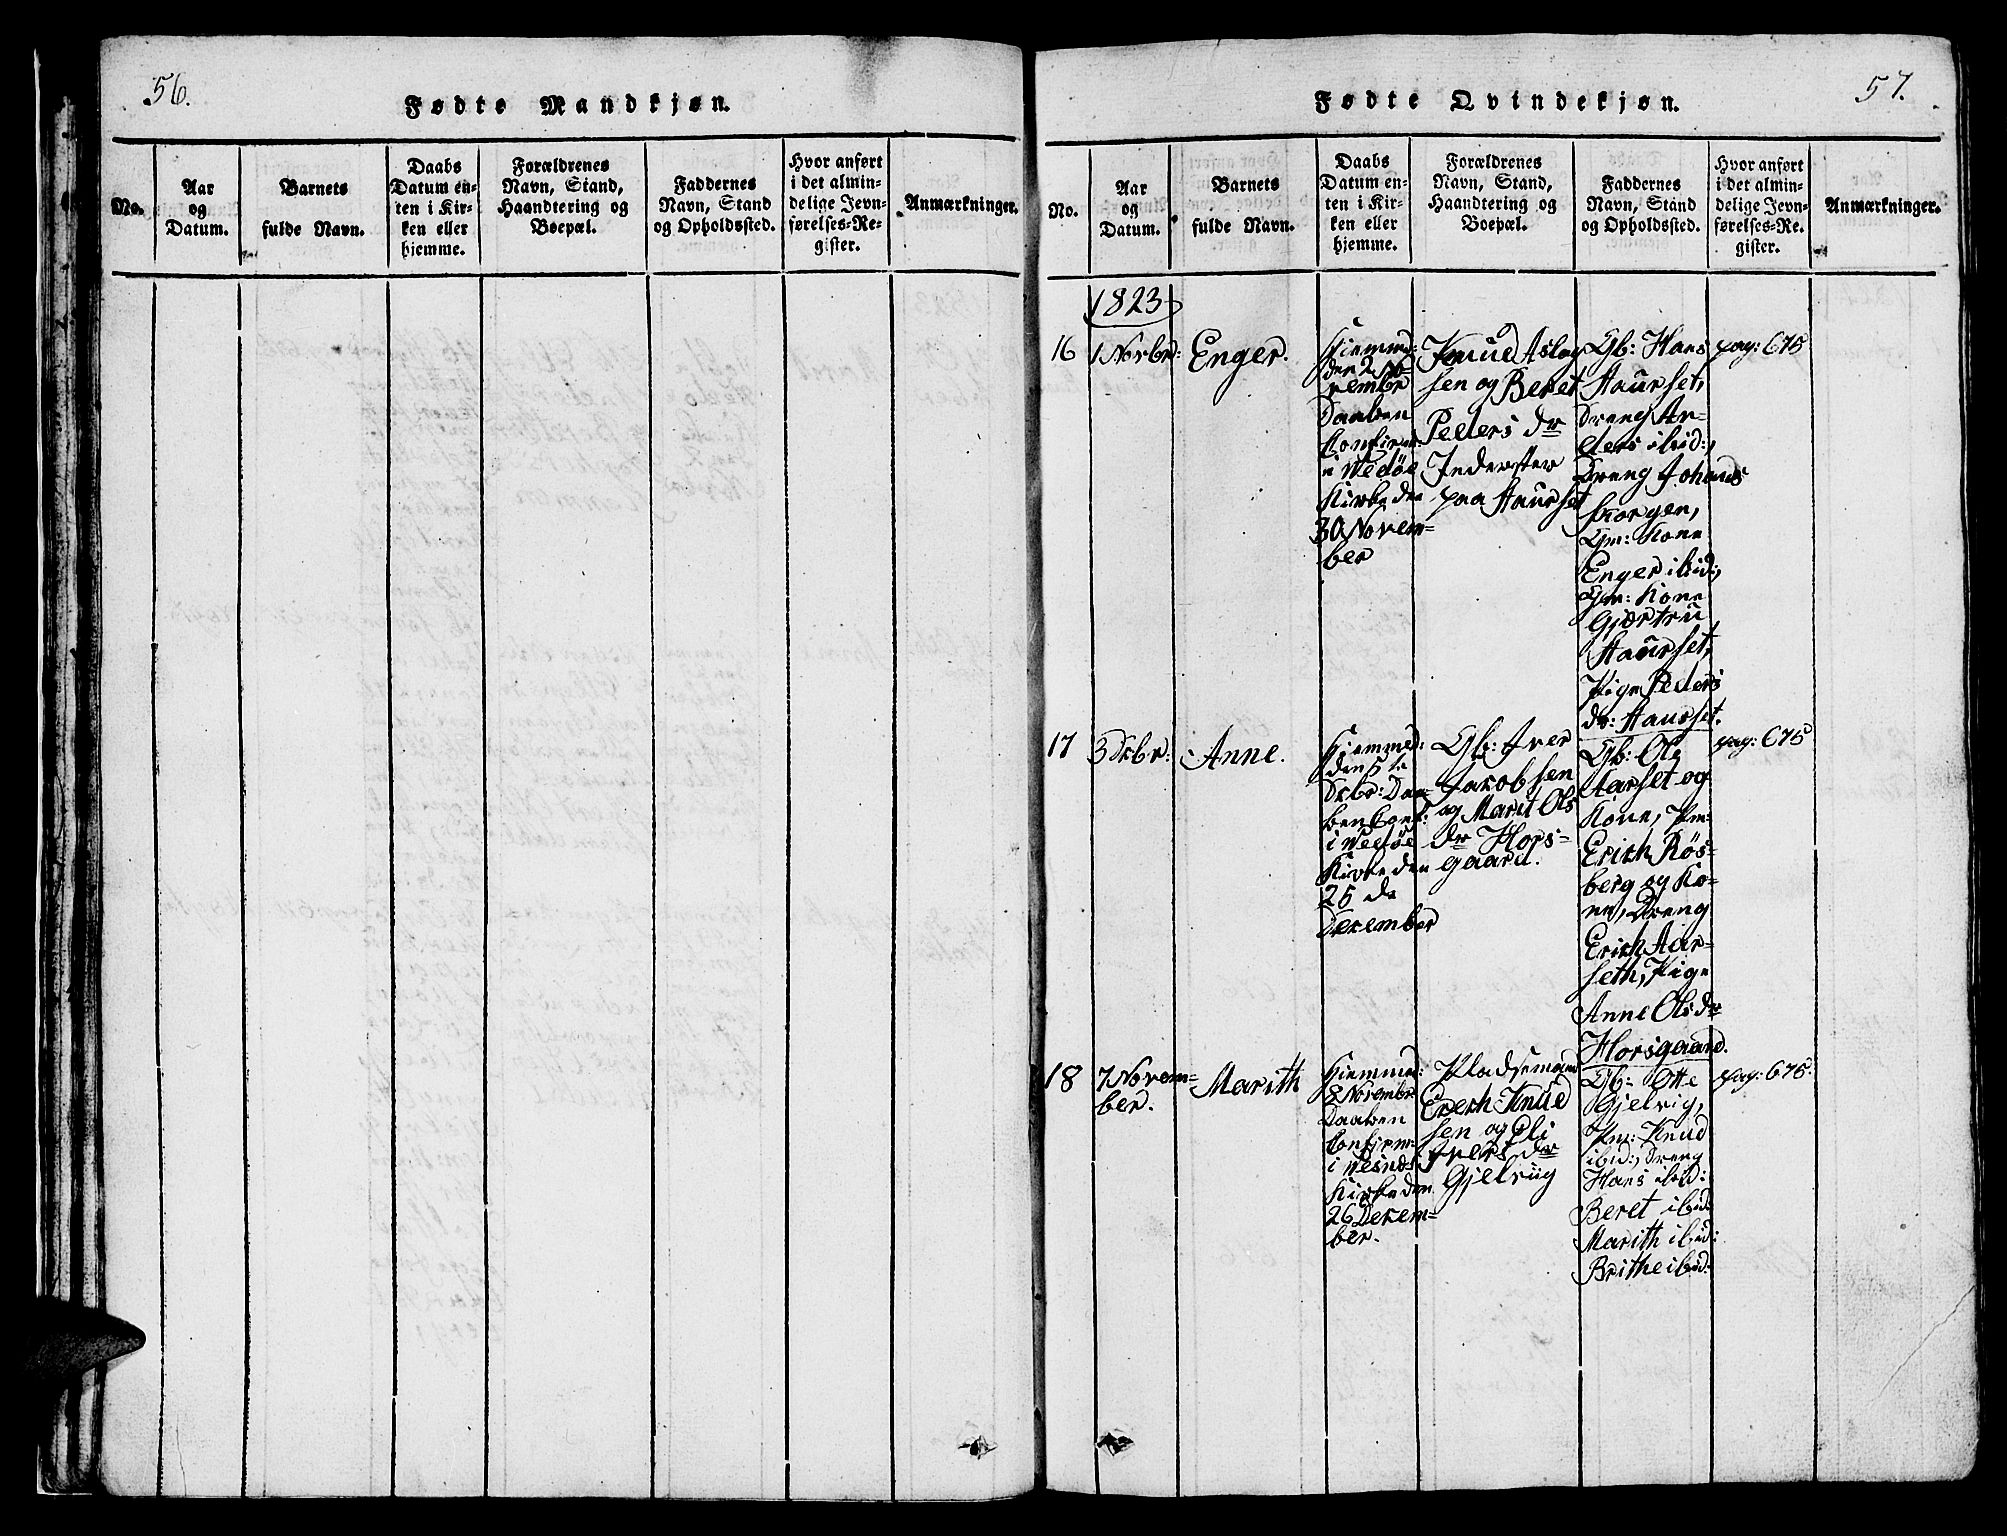 56.
Fødte Mandkjøn.
No.
Aar
og
Datum.
Barnets
fulde Navn.
Daabs
Datum en-
ten i Kir-
ken eller
hjemme.
Forældrenes
Navn, Stand,
Haandtering og
Boepæl.
Faddernes
Navn, Stand
og Opholdssted.
Hvor anført
i det almin-
delige Jevn-
førelses-Re-
gister.
Anmærkninger.
57.
Fødte Qvindekjøn.
No.
Aar
og
Datum.
Barnets
fulde Navn.
Daabs
Datum en-
ten i Kir-
ken eller
hjemme.
Forældrenes
Navn, Stand,
Haandtering og
Boepæl.
Faddernes
Navn, Stand
og Opholdssted.
Hvor anført
i det almin-
delige Jevn-
førelses-Re-
gister.
Anmærkninger.
1823
16
1 Novbr:
Enger.
Hjemmed:
den 2 No-
vembr
Daaben
Confirm:
i Vedøe
Kirke den
30 Novem-
ber
Knud Aslag
sen og Beret
Peders dr
Inderster
paa Haurset
Gb: Hans
Haurset,
Dreng An-
ders ibid:,
Dreng Johans
Skorgen,
Gm: Kone
Enger ibid:,
Gm: Kone
Gjertru
Haurset,
Pige Peders
dr: Haurset.
pag: 675
17
3 Dcbr:
Anne.
Hjemmed:
den 5te
Dcbr: Daa-
ben Conf:
i Vedøe
Kirke den
25 de
December
Gb: Iver
Jacobsen
og Marit Ols
dr Hors-
gaard.
Gb: Ole
Aarset og
Kone, Pm:
Erich Røs-
berg og Ko-
ne, Dreng
Erich Aar-
seth, Pige
Anne Olsdr
Horsgaard.
pag: 675
18
7 Novem-
ber.
Marith
Hjemmed:
8 Novembr
Daaben
Confirm:
i Vesnæs
Kirke den
26 Decem-
ber.
Pladsemand
Erech Knud
sen og Eli
Ivers dr
Gjelviig
Gb: Otte
Gjelvig,
Pm: Knud
ibid:, Dreng
Hans ibid:
Beret ibid
Marith ibid:
Brithe ibid:
pag: 675.